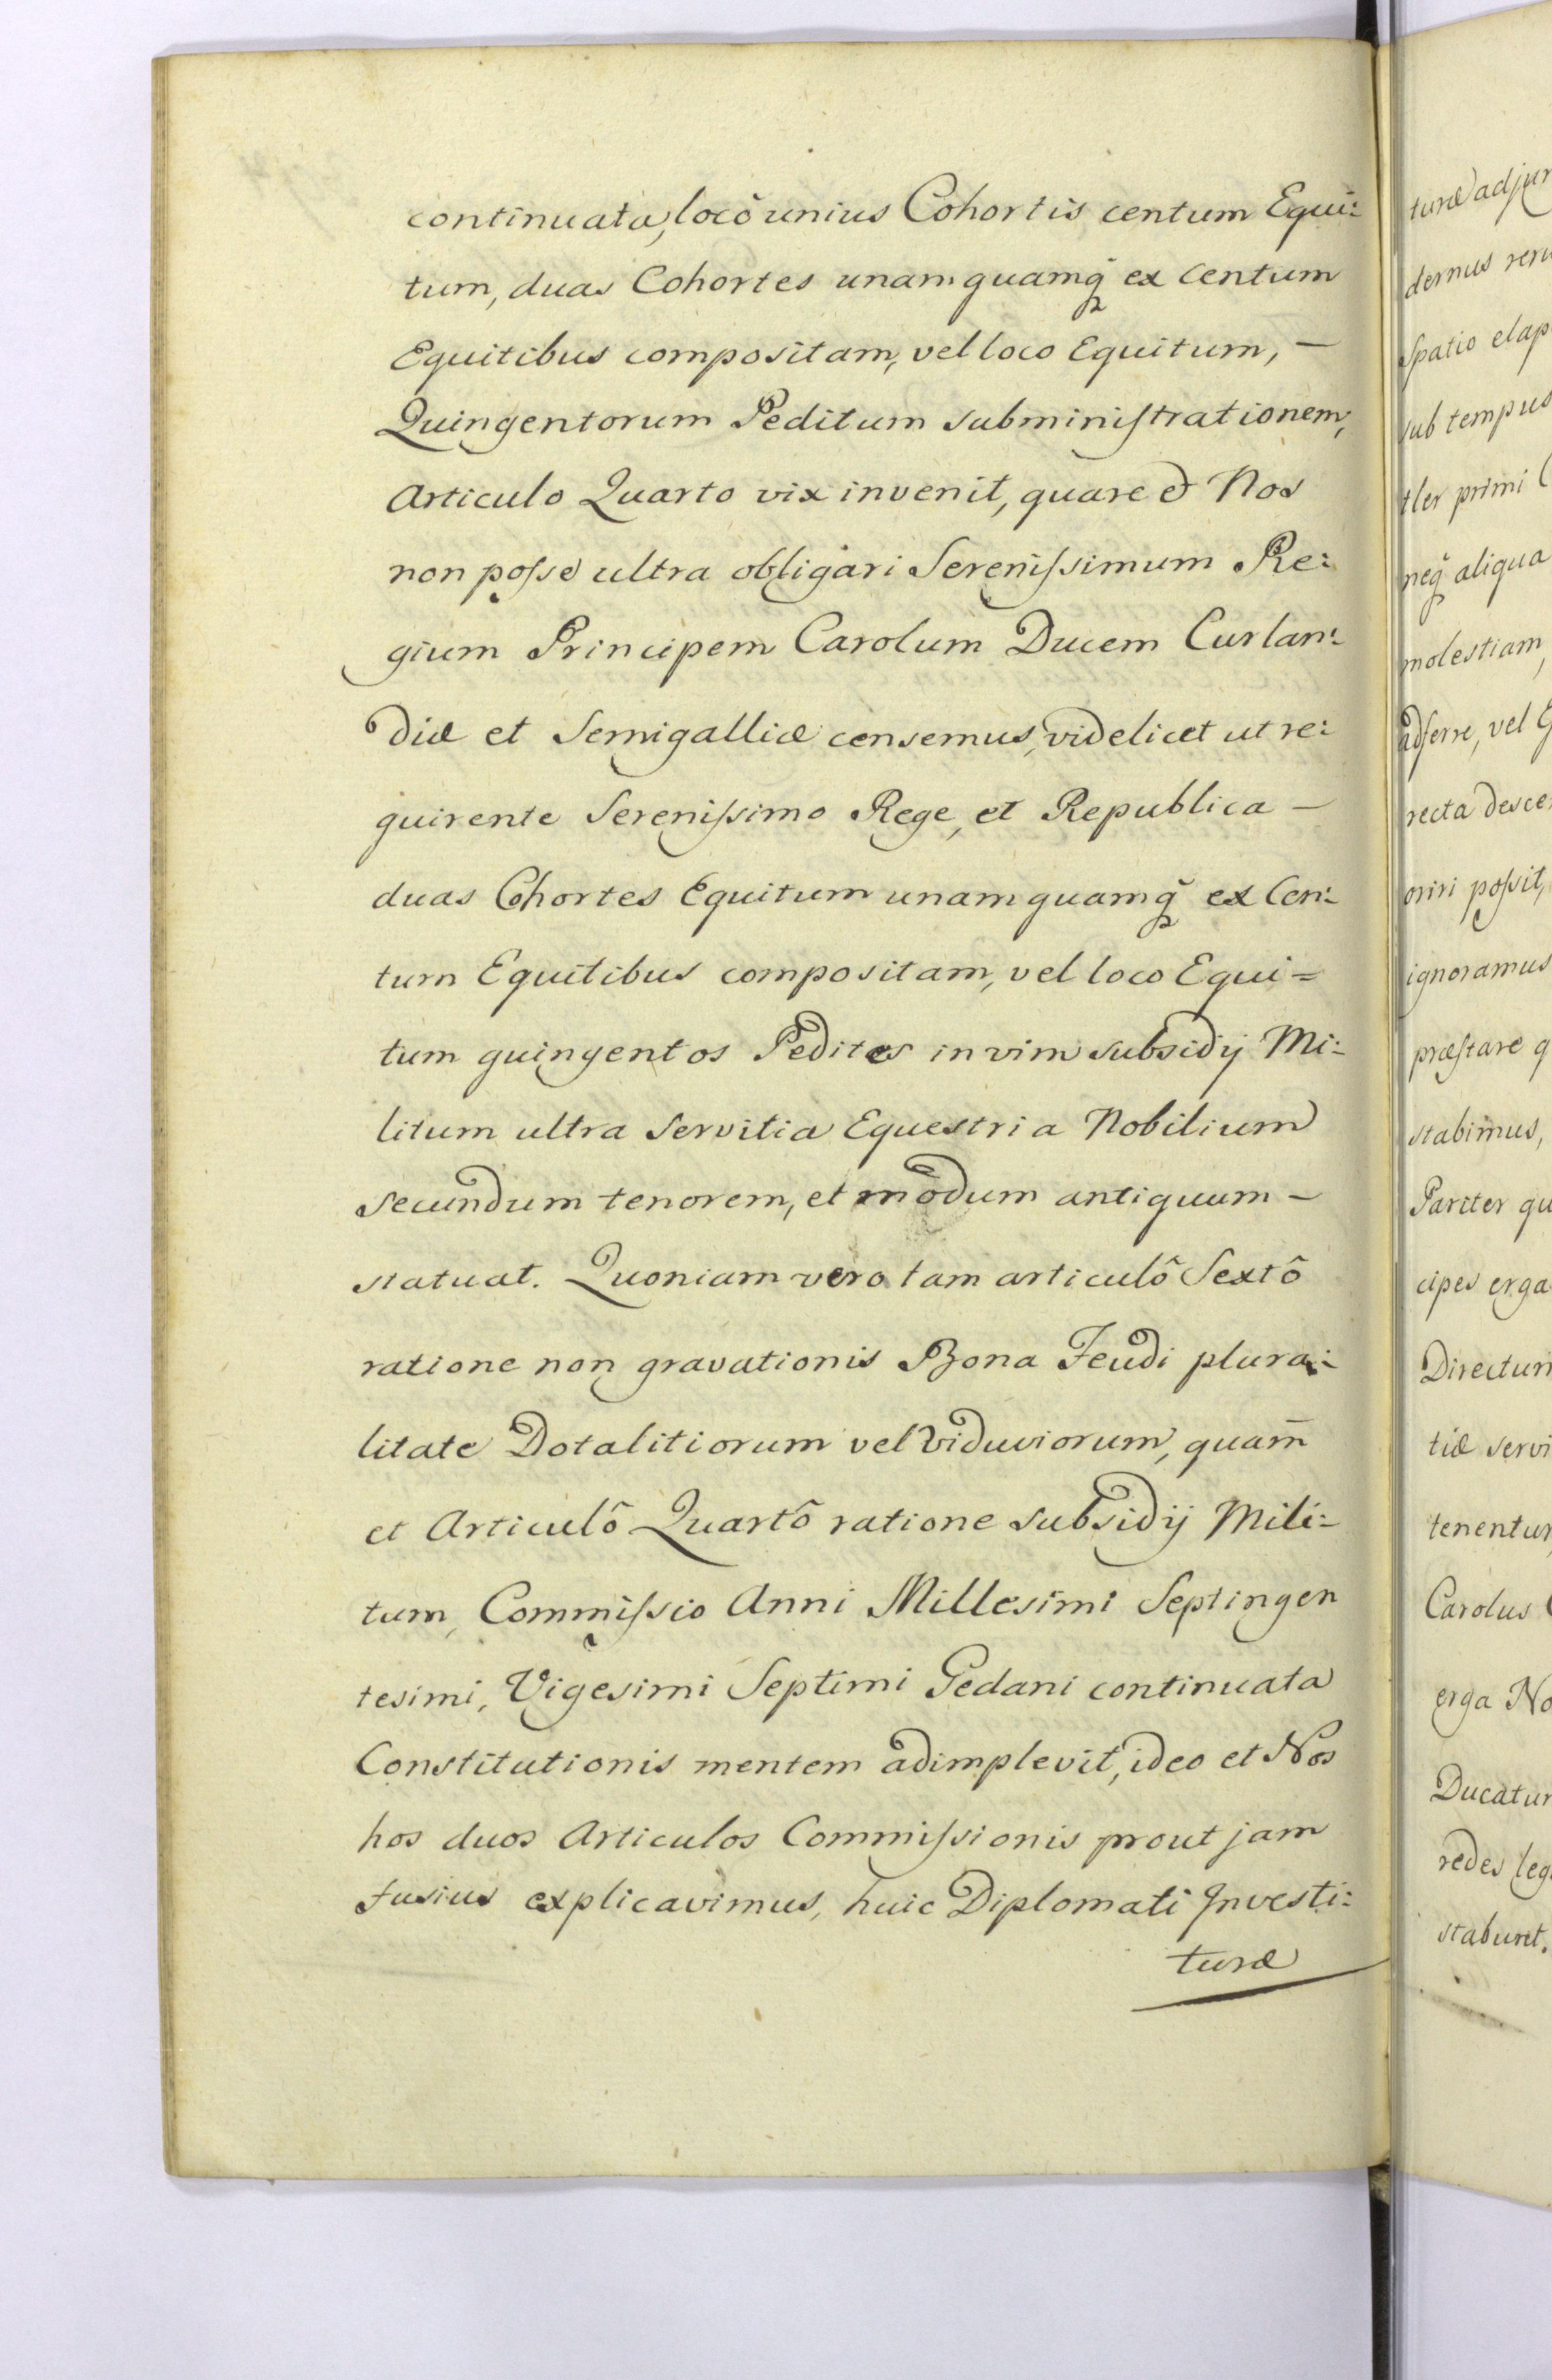 continuata, locô unius Cohortis centum Equi:
tum, duas Cohortes unamquamq́ ex Centum
Equitibus compositam, vel loco Equitum, —
Quingentorum Peditum subminiſtrationem,
Articulo Quarto vix invenit, quare & Nos
non poſse ultra obligari Sereniſsimum Re:
gium Principem Carolum Ducem Curlan:
diæ et Semigalliæ censemus, videlicet ut re:
quirente Sereniſsimo Rege, et Republica —
duas Cohortes Equitum unamquamq́ ex Cen:
tum Equitibus compositam, vel loco Equi=
tum quingentos Pedites in vim subsidij Mi:
litum ultra Servitia Equestria Nobilium
Secundum tenorem, et modum antiquum —
statuat. Quoniam vero tam articulô Sextô
ratione non gravationis Bona Feudi plura:
litate Dotalitiorum vel Viduviorum, quam̄
et Articulô Quartô ratione Subsidij Mili:
tum, Commiſsio Anni Millesimi Septingen
tesimi, Vigesimi Septimi Gedani continuata
Constitutionis mentem adimplevit, ideo et Nos
hos duos Articulos Commiſsionis prout jam
fusius explicavimus, huic Diplomati Investi:
turæ
turæ adjun
dernus
Spatio elap
sub tempus
primi
neq́ aliqua
molestiam,
adferre, vel
recta desce
oriri poſsit,
ignoramus
præſtare q
stabimus,
Pariter qu
cipes erga
Directum
tiæ servi
tenentur,
Carolus
erga No
Ducatur
redes leg
stabunt.